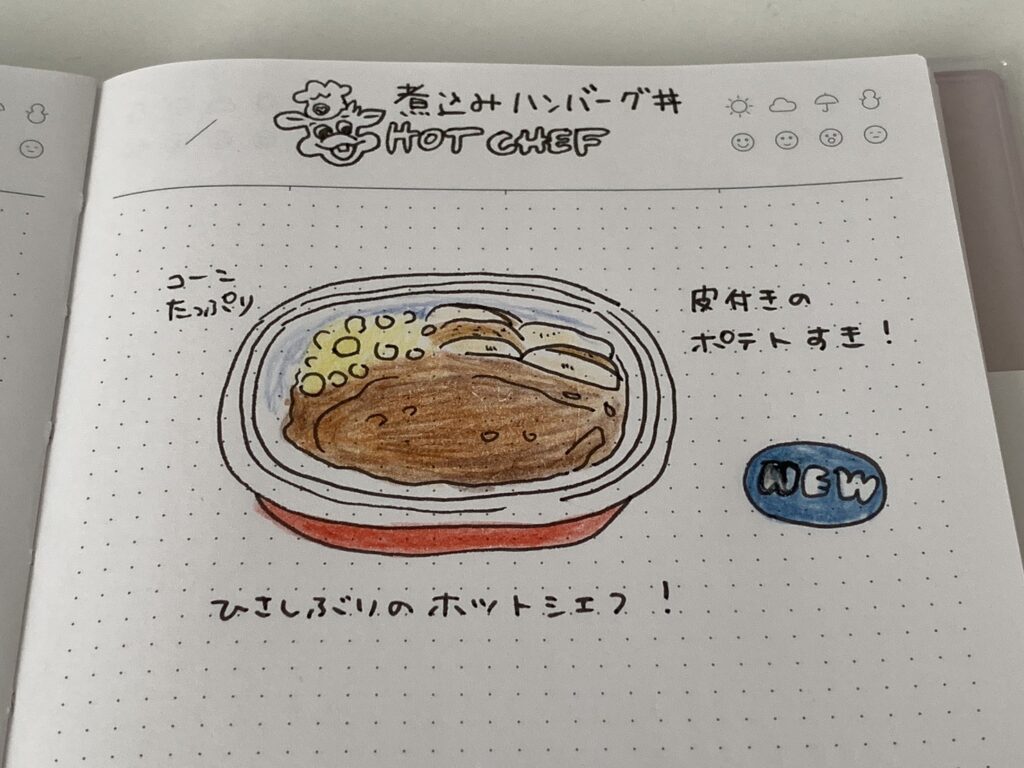 煮込みハンバーグ丼
HOT CHEF
コーン
たっぷり
皮付きの
ポテトすき！
NEW
ひさしぶりのホットシェフ！